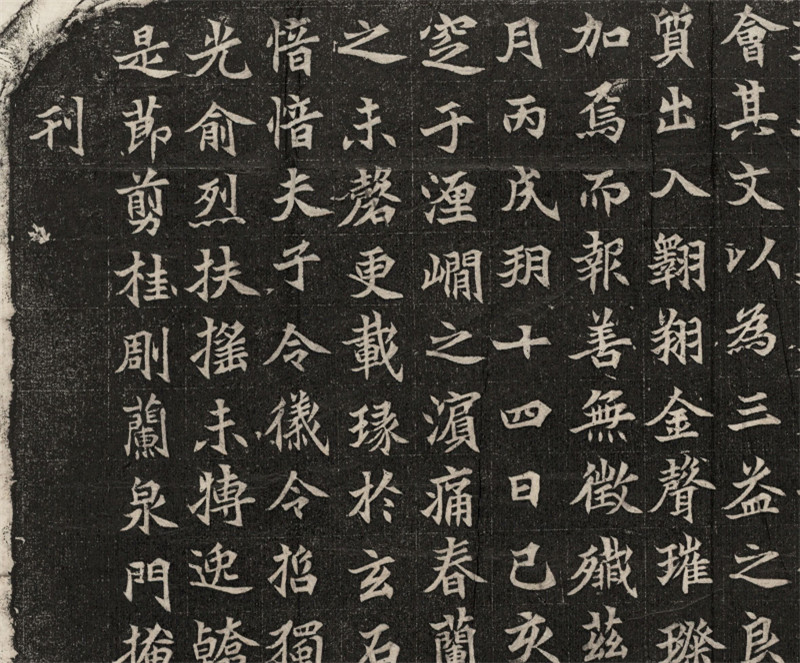 會其文以為三益之良
質出入翱翔金聲璀璨
加焉而報善無徵殲茲
月丙戌朔十四日己亥
窆于湹澗之濱痛春蘭
之未馨更載琭於玄石
愔愔夫子令徽令哲獨
光俞烈扶搖未搏逸
是節剪桂㓮蘭泉門掩
刊